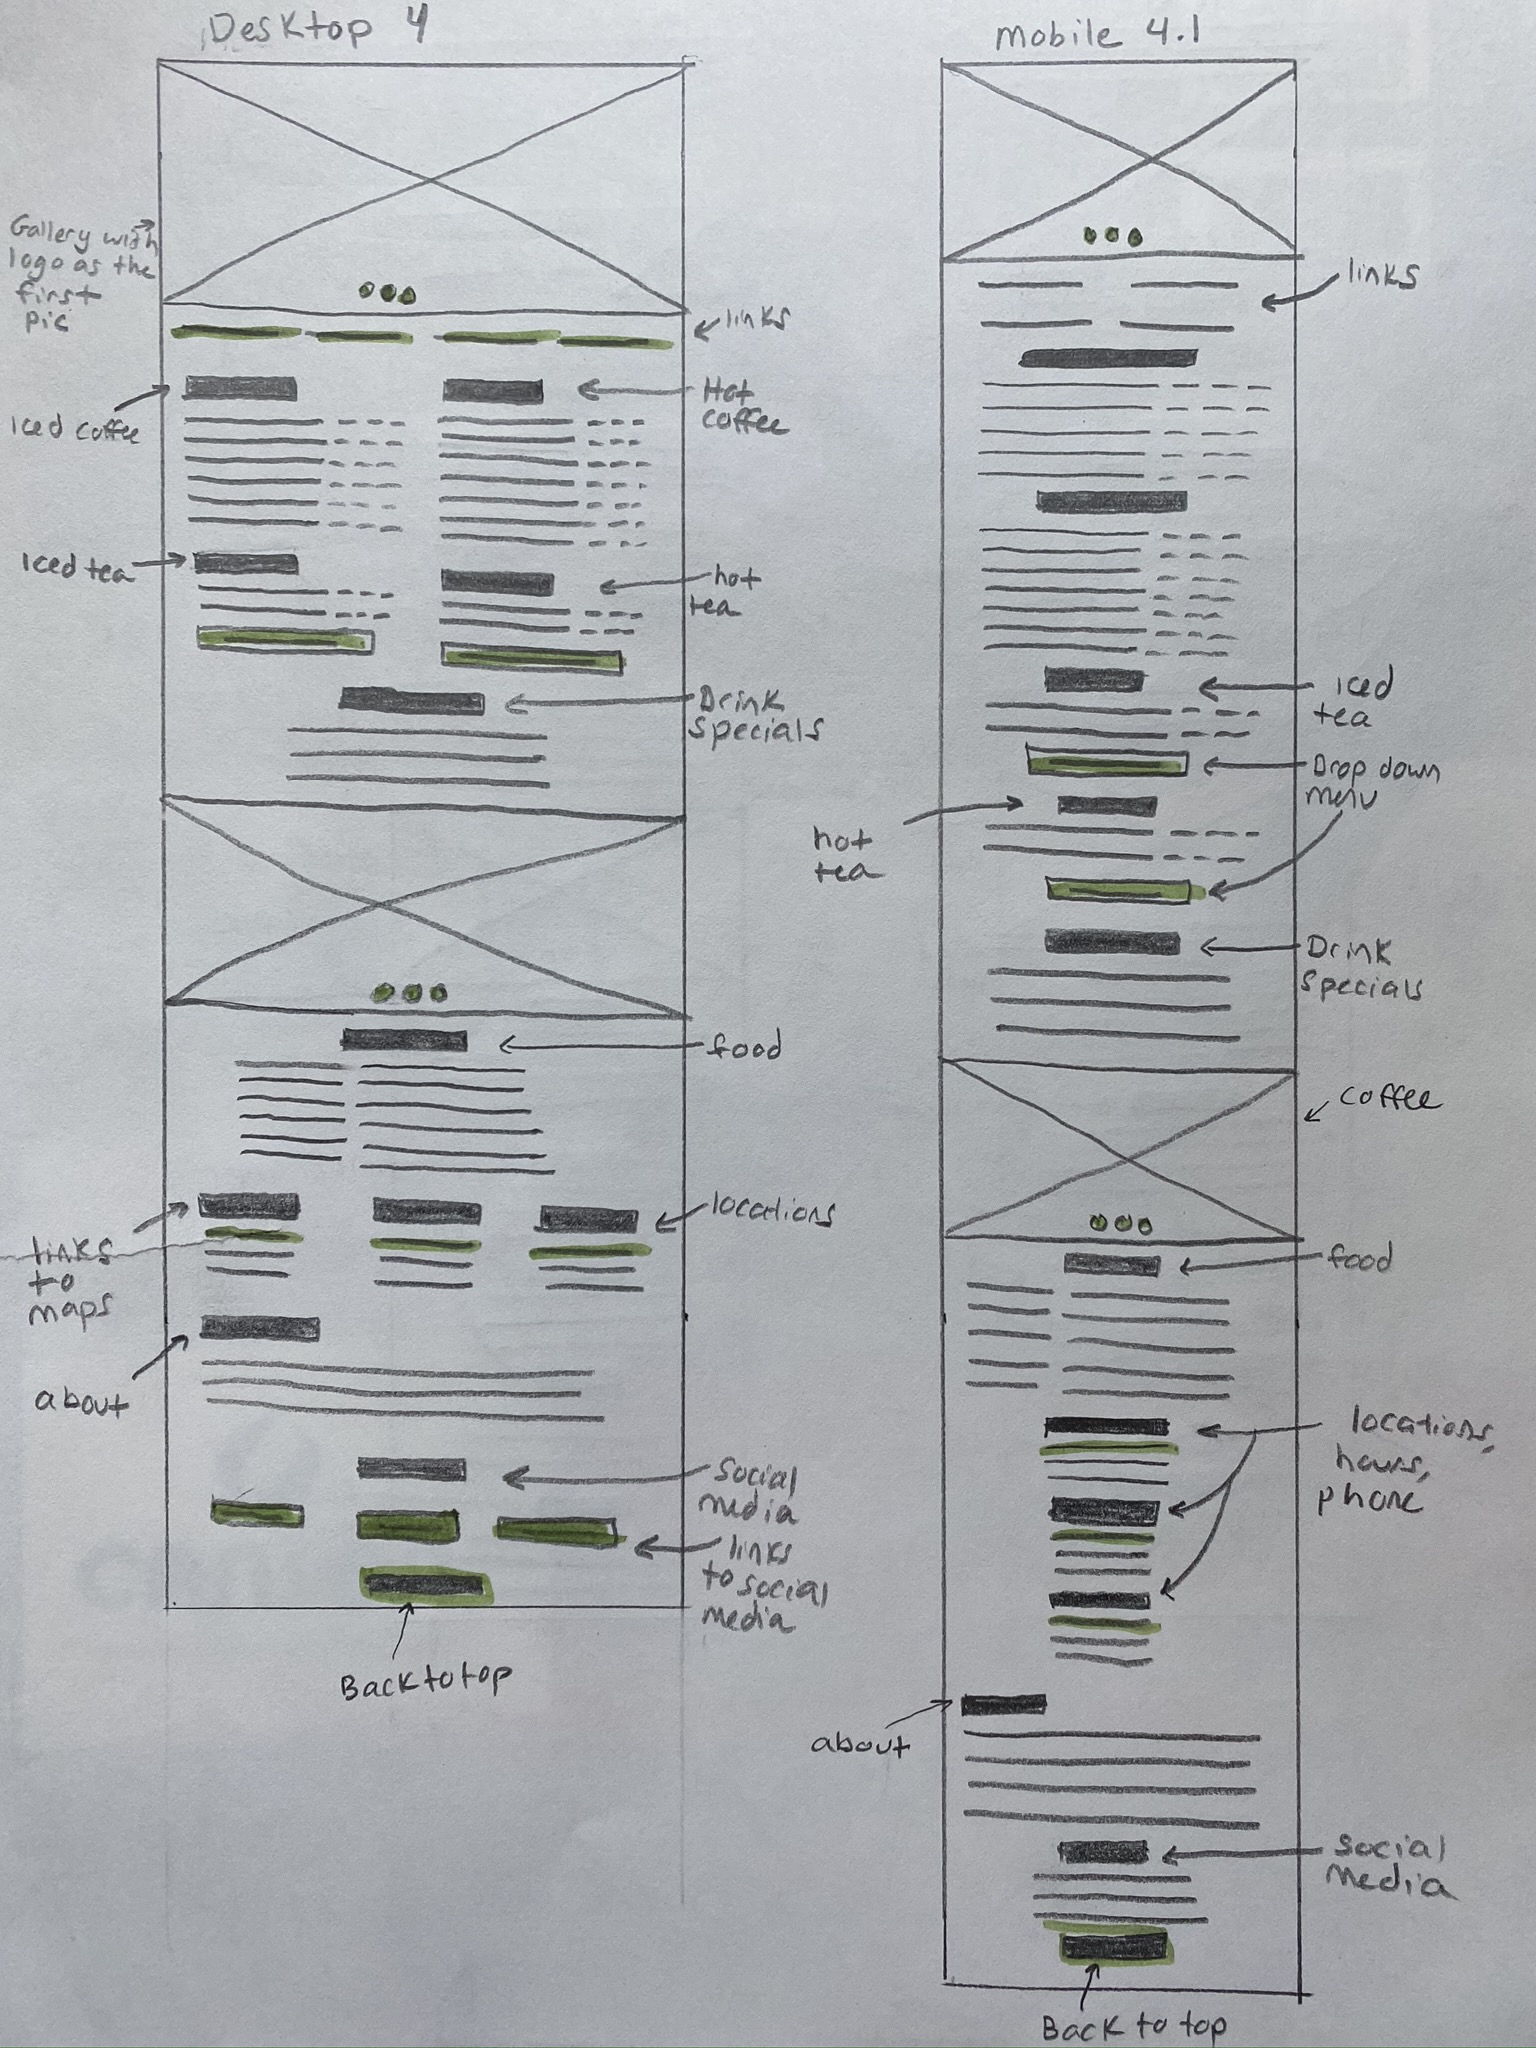 Desktop 4
Gallery with
logo as the
first
pic
links
Iced coffee
Hot
coffee
Iced tea
hot
tea
Drink
specials
food
links
to
maps
locations
about
social
media
links
to social
media
Back to top
mobile 4.1
links
Iced
tea
Drop down
menu
hot
tea
Drink
specials
coffee
food
locations,
hours,
phone
about
social
media
Back to top